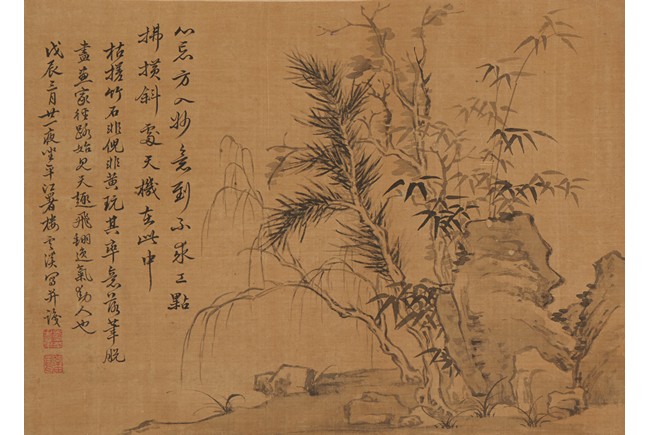 心忘方入妙意到不求工點
拂橫斜處天機在此中
枯槎竹石非倪非黃玩其率意落筆脫
盡畫家徑路始見天趣飛翻逸氣動人也
戊辰三月廿一夜坐平江署樓雲溪寫并識